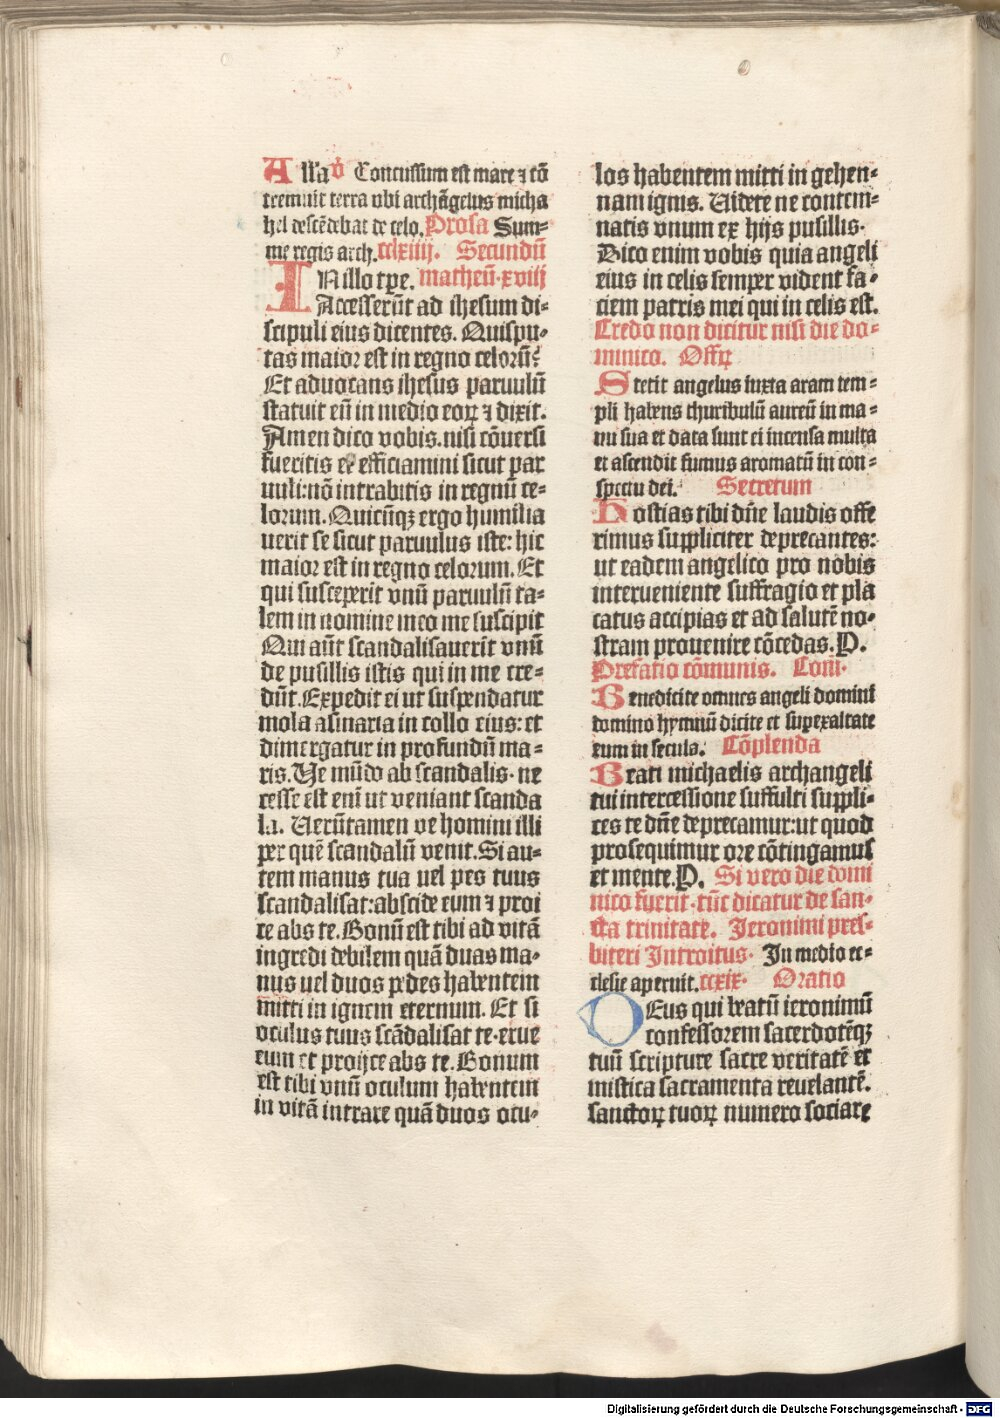 Alľa ꝟ Concussum est mare ⁊ cō
tremuit terra vbi archāgelus micha
hel descēdebat de celo. Prosa Sum⸗
me regis arch. cclxiiij. Secundū
IN illo tꝑe. matheū. xviij
Accesserūt ad ihesum di⸗
scipuli eius dicentes. Quispu⸗
tas maior est in regno celorū?
Et aduocans ihesus paruulū
statuit eū in medio eoꝝ ⁊ dixit.
Amen dico vobis. nisi cōuersi
fueritis et efficiamini sicut par
uuli: nō intrabitis in regnū ce⸗
lorum. Quicūqꝫ ergo humilia
uerit se sicut paruulus iste: hic
maior est in regno celorum. Et
qui susceperit vnū paruulū ta⸗
lem in nomine meo me suscipit
Qui aūt scandalisauerit vnū
de pusillis istis qui in me cre⸗
dūt. Expedit ei ut suspendatur
mola asinaria in collo eius: et
dimergatur in profundū ma⸗
ris. Ve mūdo ab scandalis. ne
cesse est enī ut veniant scanda
la. Uerūtamen ve homini illi
per quē scandalū venit. Si au⸗
tem manus tua uel pes tuus
scandalisat: abscide eum ⁊ proi
ce abs te. Bonū est tibi ad vitā
ingredi debilem quā duas ma⸗
nus uel duos pedes habentem
mitti in ignem eternum. Et si
oculus tuus scādalisat te. erue
eum et proijce abs te. Bonum
est tibi vnū oculum habentem
in vitā intrare quā duos ocu⸗
los habentem mitti in gehen⸗
nam ignis. Uidete ne contem⸗
natis vnum ex hijs pusillis.
Dico enim vobis quia angeli
eius in celis semper vident fa⸗
ciem patris mei qui in celis est.
Credo non dicitur nisi die do⸗
minico. Offꝝ
Stetit angelus iuxta aram tem⸗
pli habens thuribulū aureū in ma⸗
nu sua et data sunt ei incensa multa
et ascendit fumus aromatū in con⸗
spectu dei. Secretum
Hostias tibi dn̄e laudis offe
rimus suppliciter deprecantes:
ut eadem angelico pro nobis
interueniente suffragio et pla
catus accipias et ad salutē no⸗
stram prouenire cōcedas. P.
Prefatio cōmunis. Com̄.
Benedicite omnes angeli domini
domino hymnū dicite et superexaltate
eum in secula. Cōplenda
Beati michaelis archangeli
tui intercessione suffulti suppli⸗
ces te dn̄e deprecamur: ut quod
prosequimur ore cōtingamus
et mente. P. Si vero die domi
nico fuerit. tūc dicatur de san⸗
cta trinitate. Jeronimi pres⸗
biteri Introitus. In medio ec⸗
clesie aperuit. ccxix. Oratio
DEus qui beatū ieronimū
confessorem sacerdotēqꝫ
tuū scripture sacre veritatē et
mistica sacramenta reuelantē.
sanctoꝝ tuoꝝ numero sociare
Digitalisierung gefördert durch die Deutsche Forschungsgemeinschaft - DFG